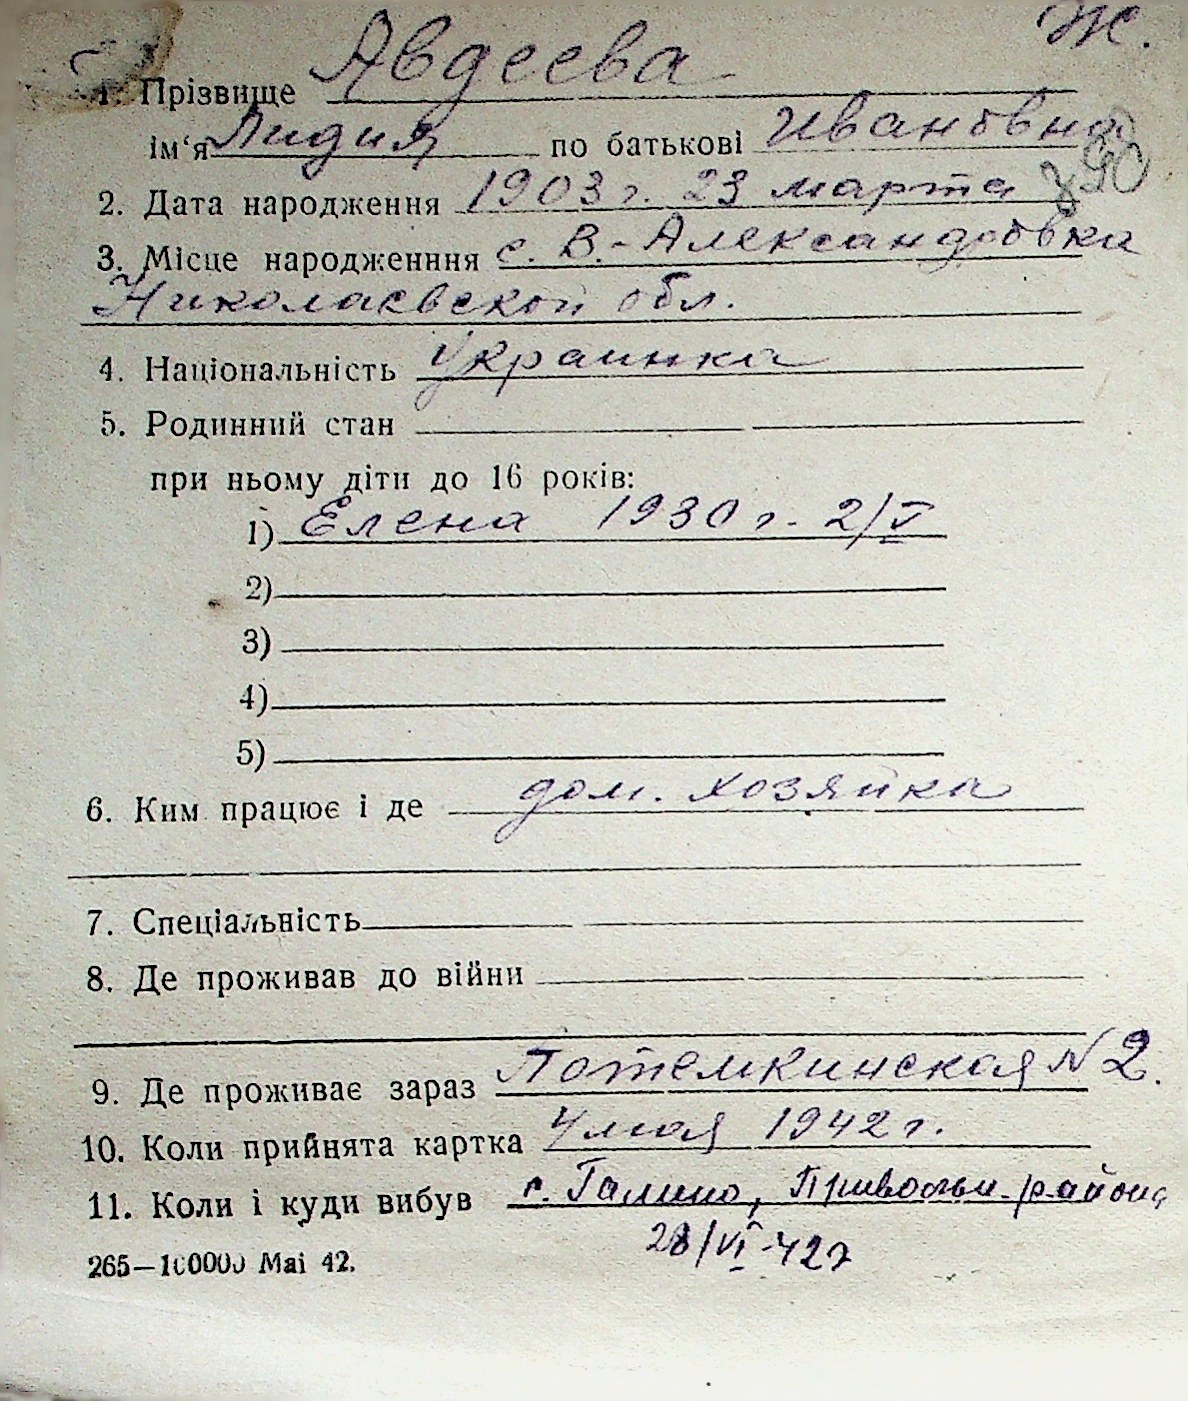 Ж.
1. Прізвище Авдеева
ім‘я Лидия по батькові Ивановна
2. Дата народження 1903 г. 23 марта
3. Місце народженння с. В.-Александровка
Николаевской обл.
4. Національність Украинка
5. Родинний стан
при ньому діти до 16 років:
1) Елена 1930 г. 2/V
2)
3)
4)
5)
6. Ким працює і де дом. хозяйка
7. Спеціальність
8. Де проживав до війни
9. Де проживає зараз Потемкинская N 2.
10. Коли прийнята картка 4 мая 1942 г.
11. Коли і куди вибув района
28/VI-42г
265—100000 Mai 42.